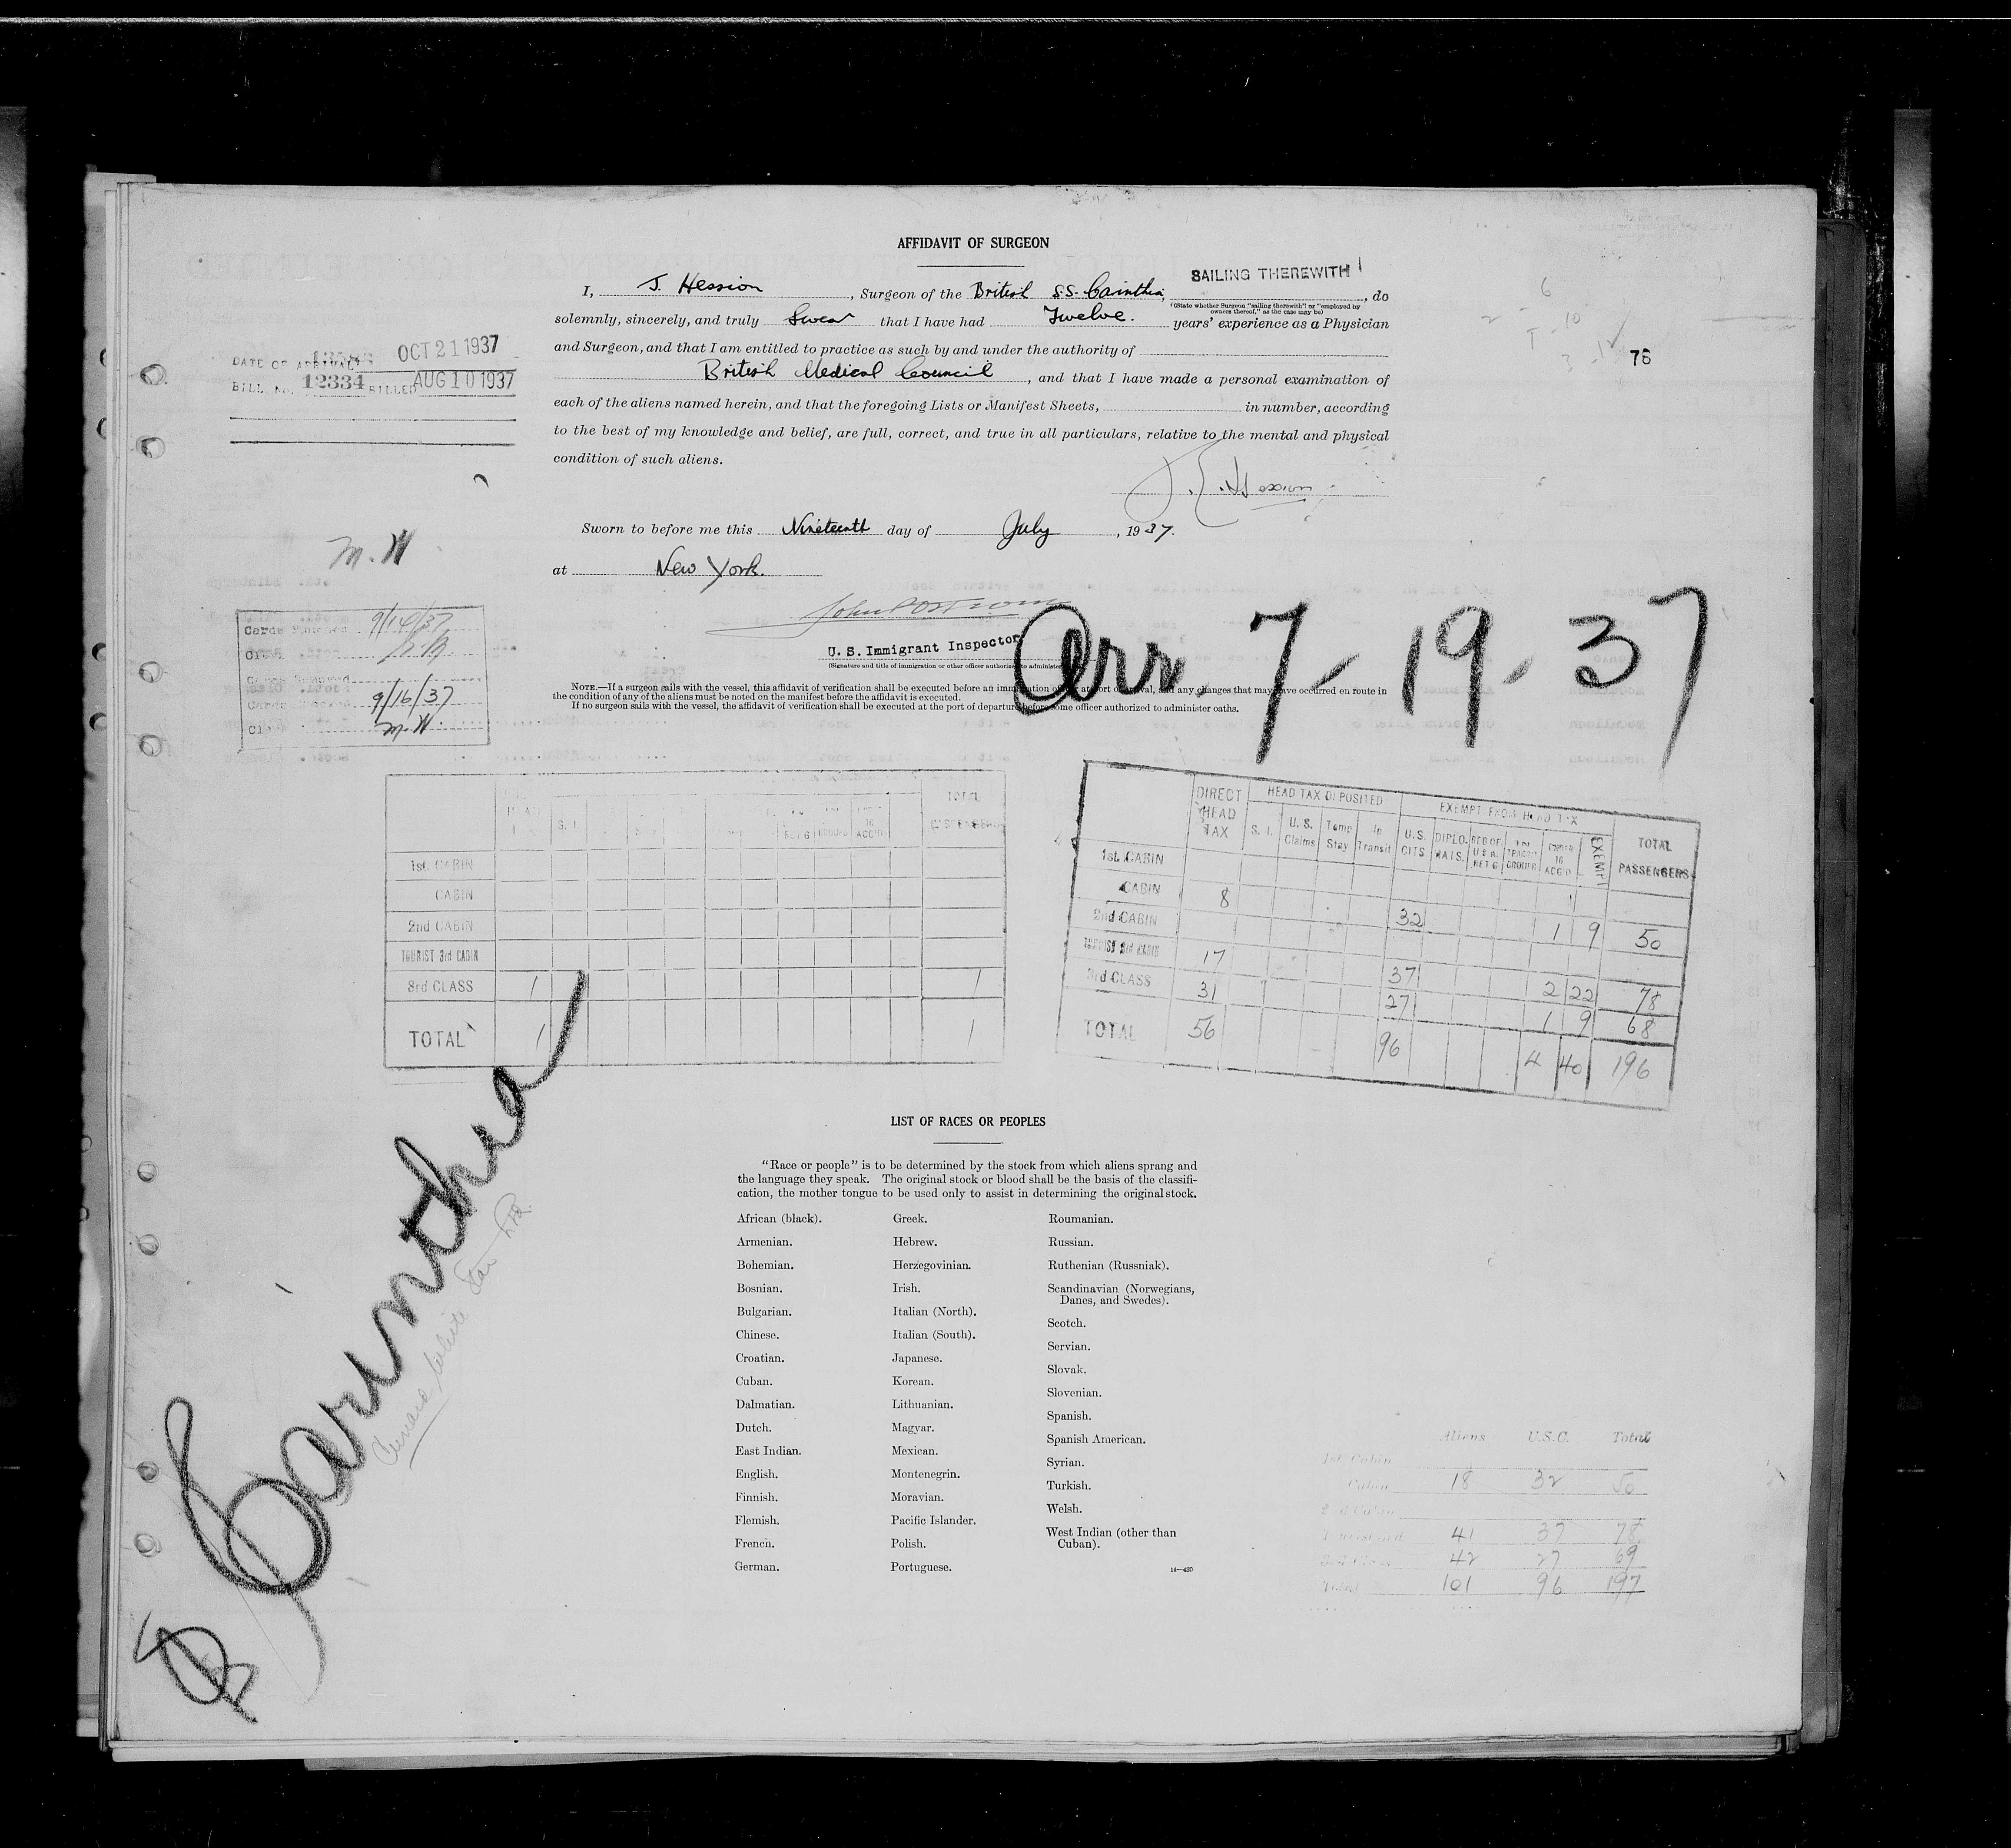 AFFIDAVIT OF SURGEON
SAILING THEREWITH
I, J. Hession, Surgeon of the British S.S. Carinthia, do
(State whether Surgeon "sailing therewith" or "employed by
owners thereof," as the case may be)
solemnly, sincerely, and truly Swear that I have had Twelve. years' experience as a Physician
and Surgeon, and that I am entitled to practice as such by and under the authority of
British Medical Council, and that I have made a personal examination of
each of the aliens named herein, and that the foregoing Lists or Manifest Sheets, in number, according
to the best of my knowledge and belief, are full, correct, and true in all particulars, relative to the mental and physical
condition of such aliens.
J. Hession
Sworn to before me this Nineteenth day of July, 1937.
at New York.
U. S. Immigrant Inspector
(Signature and title of immigration or other officer authorized to administer
NOTE.—If a surgeon sails with the vessel, this affidavit of verification shall be executed before an immigration at port of arrival, and any changes that may have occurred en route in
the condition of any of the aliens must be noted on the manifest before the affidavit is executed.
If no surgeon sails with the vessel, the affidavit of verification shall be executed at the port of departure before some officer authorized to administer oaths.
76
DATE OF ARRIVAL OCT 21 1937
BILL NO. 12334 BILLED AUG 10 1937
M. W
Cards Punched 9/14/37
Clerk
9/16/37
Cards
Clerk M. W.
Arr 7-19-37
TOTAL
S. I.
ACC'D
1st. CABIN
CABIN
2nd CABIN
TOURIST 3rd CABIN
3rd CLASS 1 1
TOTAL 1 1
DIRECT HEAD TAX
HEAD TAX DEPOSITED
EXEMPT FROM HEAD TAX
TOTAL PASSENGERS
S. I. U. S. Claims Temp Stay In Transit U.S. CITS. DIPLOMATS. RES OF U S A RET'G TRANSIT GROUPS UNDER 16 ACC'D EXEMPT
1st. CABIN
CABIN 8 32 1 9 50
2nd CABIN
TOURIST 3rd CABIN 17 37 2 22 78
3rd CLASS 31 27 1 9 68
TOTAL 56 96 4 40 196
Carinthia
Cunard White Star Ltd.
LIST OF RACES OR PEOPLES
"Race or people" is to be determined by the stock from which aliens sprang and
the language they speak. The original stock or blood shall be the basis of the classifi-
cation, the mother tongue to be used only to assist in determining the original stock.
African (black).
Armenian.
Bohemian.
Bosnian.
Bulgarian.
Chinese.
Croatian.
Cuban.
Dalmatian.
Dutch.
East Indian.
English.
Finnish.
Flemish.
French.
German.
Greek.
Hebrew.
Herzegovinian.
Irish.
Italian (North).
Italian (South).
Japanese.
Korean.
Lithuanian.
Magyar.
Mexican.
Montenegrin.
Moravian.
Pacific Islander.
Polish.
Portuguese.
Roumanian.
Russian.
Ruthenian (Russniak).
Scandinavian (Norwegians,
Danes, and Swedes).
Scotch.
Servian.
Slovak.
Slovenian.
Spanish.
Spanish American.
Syrian.
Turkish.
Welsh.
West Indian (other than
Cuban).
14—430
Aliens U.S.C. Total
1st Cabin
Cabin 18 32 50
2nd Cabin
Tourist 3rd 41 37 78
3rd Class 42 27 69
Total 101 96 197